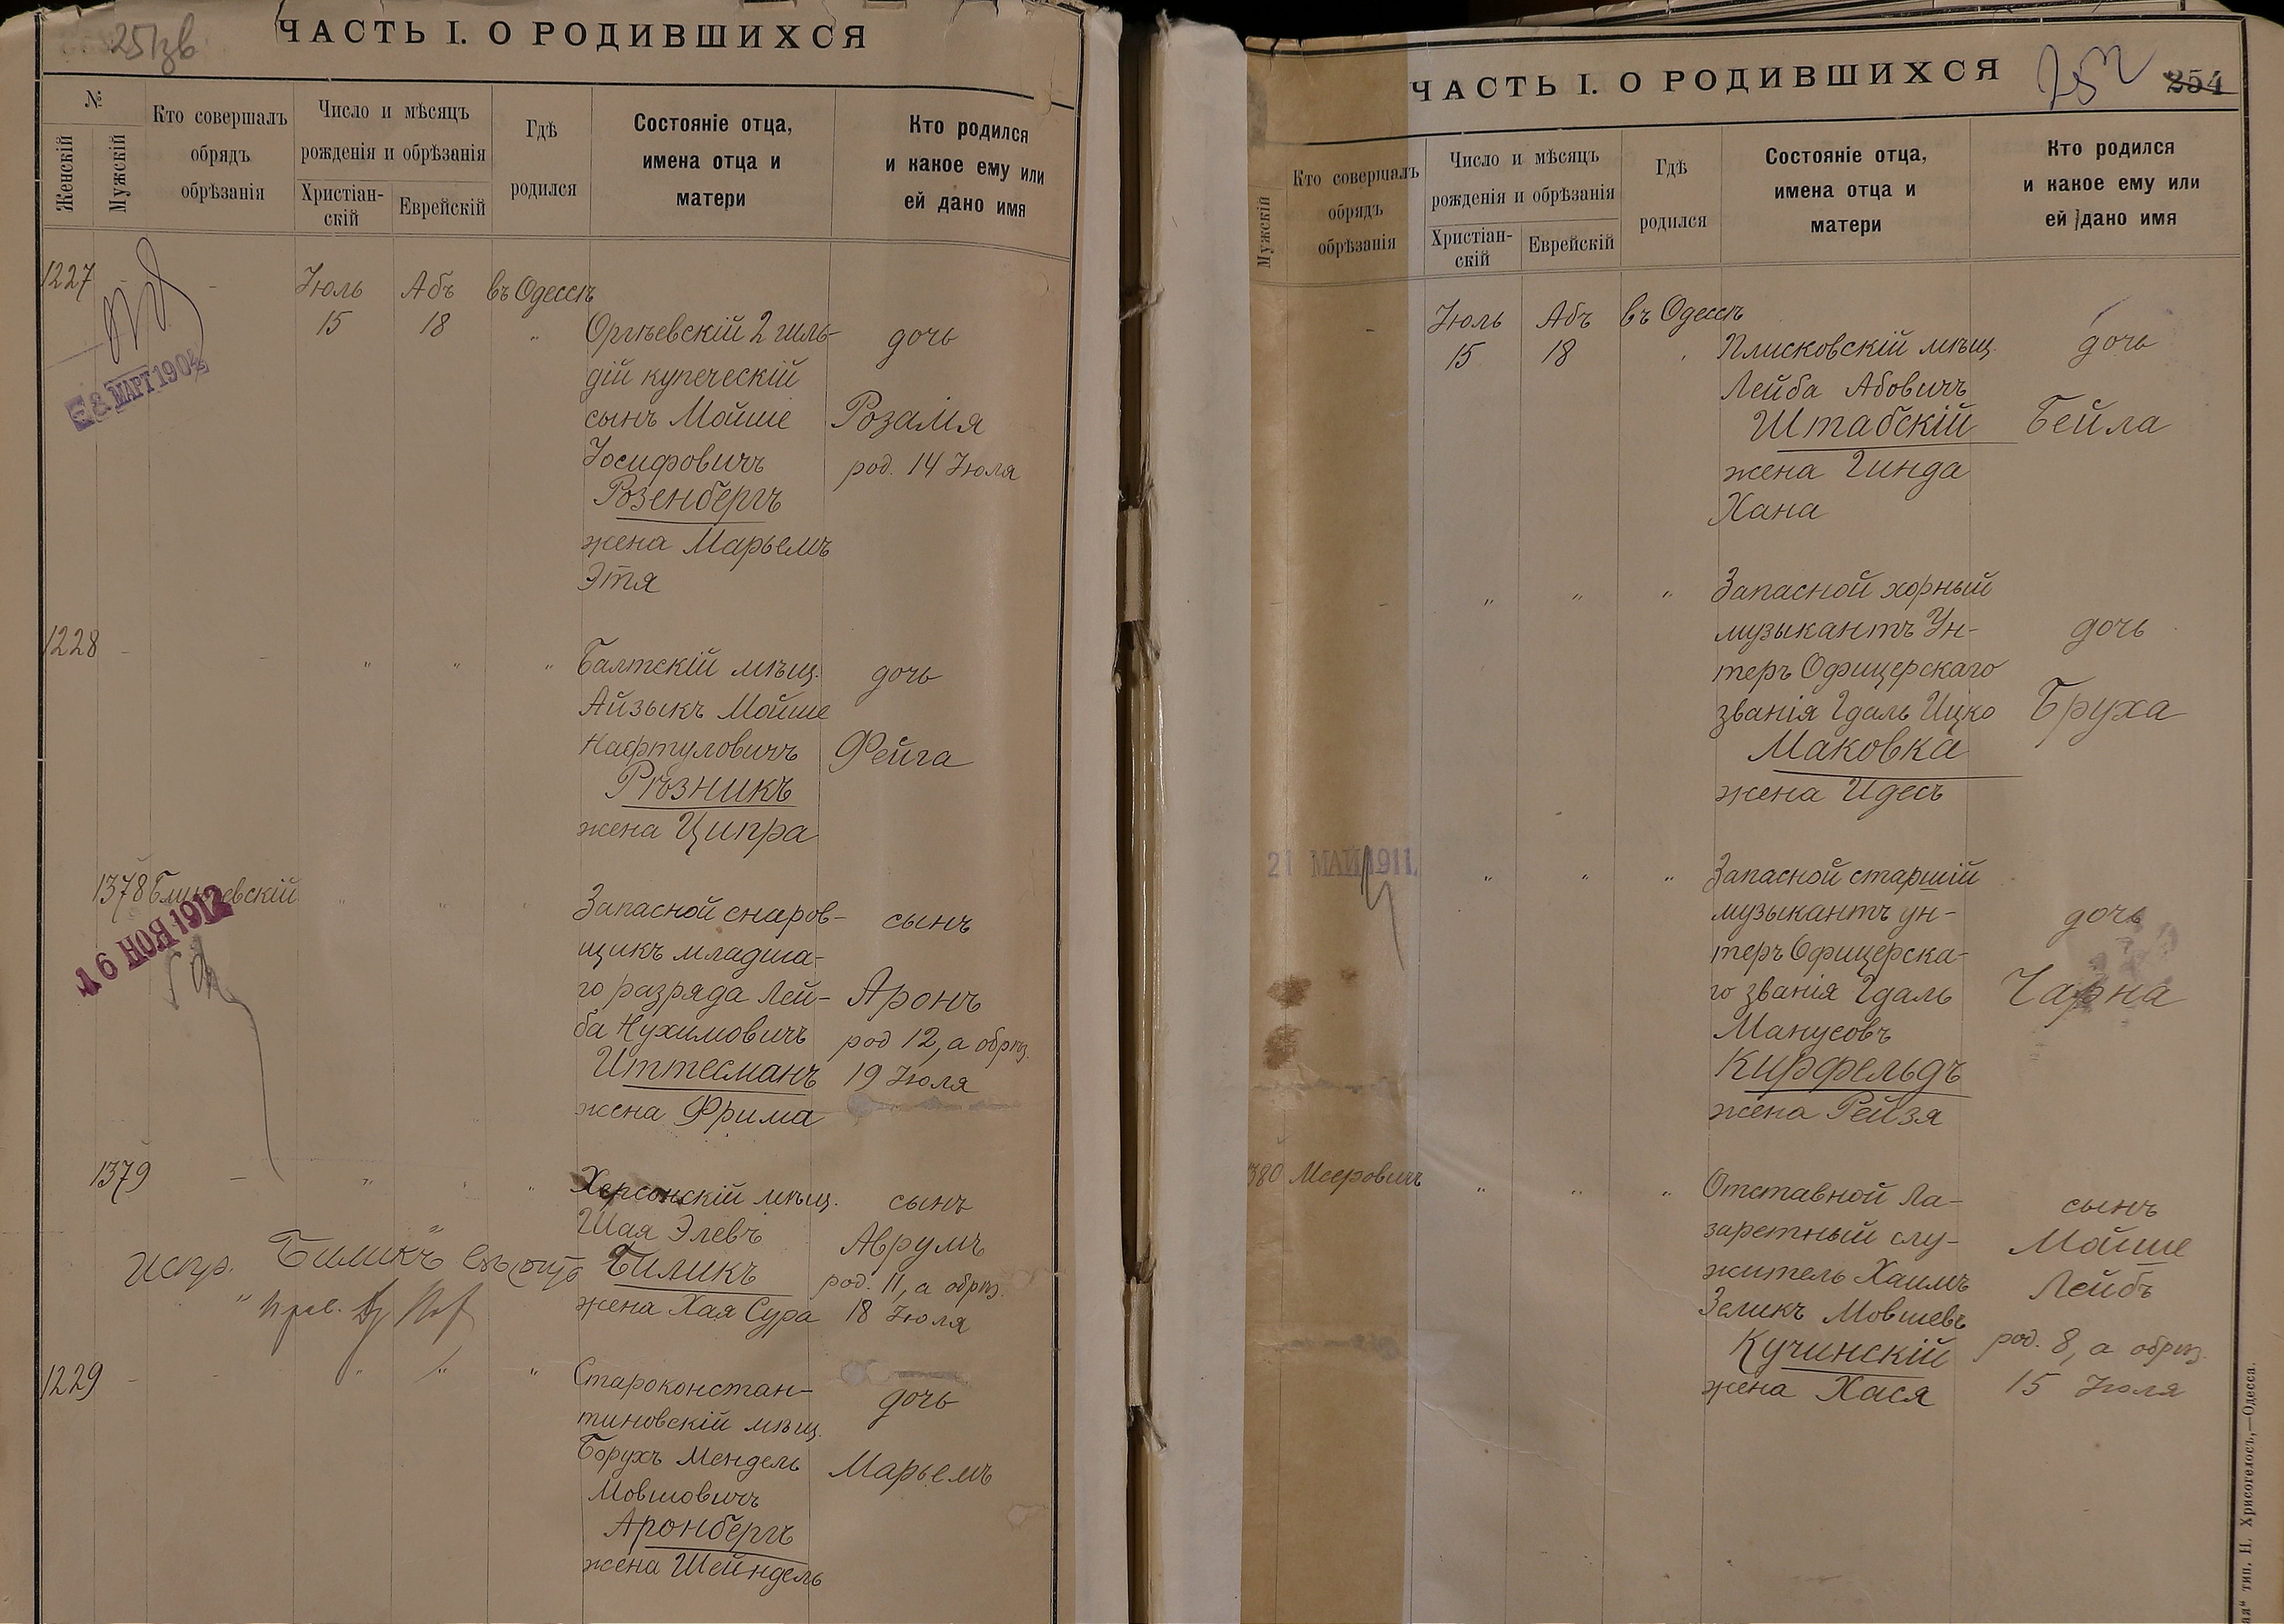 251зв
ЧАСТЬ I. О РОДИВШИХСЯ
№
Женскій
Мужскій
Кто совершалъ
обрядъ
обрѣзанія
Число и мѣсяцъ
рожденія и обрѣзанія
Христіан-
скій
Еврейскій
Гдѣ
родился
Состояніе отца,
имена отца и
матери
Кто родился
и какое ему или
ей дано имя
1227
Іюль Абъ въ Одессѣ
15 18 " Оргѣевскій 2 гиль- дочь
дій купеческій
сынъ Мойше Розалія
Іосифовичъ род. 14 Іюля
Розенбергъ
жена Марьемъ
Этя
8 МАРТ 1904
1228 - - " " " Балтскій мѣщ. дочь
Айзыкъ Мойше
Нафтуловичъ Фейга
Рѣзникъ
жена Ципра
1378 " " " Запасной снаров- сынъ
щикъ младша-
го разряда Лей- Аронъ
ба Нухимовичъ род 12, а обрѣз.
Иттесманъ 19 Іюля
жена Фрима
16 НОЯ 1912
1379 - " " " Херсонскій мѣщ. сынъ
Шая Элевъ Аврумъ
Биликъ род. 11, а обрѣз.
жена Хая Сура 18 Іюля
испр. Биликъ
1229 - - " " " Староконстан- дочь
тиновскій мѣщ.
Борухъ Мендель Марьемъ
Мовшовичъ
Аронбергъ
жена Шейндель
ЧАСТЬ I. О РОДИВШИХСЯ
252
254
Мужскій
Кто совершалъ
обрядъ
обрѣзанія
Число и мѣсяцъ
рожденія и обрѣзанія
Христіан-
скій
Еврейскій
Гдѣ
родился
Состояніе отца,
имена отца и
матери
Кто родился
и какое ему или
ей дано имя
Іюль Абъ въ Одессѣ
15 18 Плисковскій мѣщ. дочь
Лейба Абовичъ
Штабскій Бейла
жена Гинда
Хана
- " " " Запасной хорный
музыкантъ Ун- дочь
теръ Офицерскаго
званія Гдаль Ицко Бруха
Маковка
жена Идесъ
21 МАЙ 1911.
" " " Запасной старшій
музыкантъ ун- дочь
теръ Офицерска-
го званія Гдаль Чарна
Манусовъ
Кирфельдъ
жена Рейзя
380 Мееровичъ " " " Отставной Ла- сынъ
заретный слу- Мойше
житель Хаимъ Лейбъ
Зеликъ Мовшевъ
Кучинскій род. 8, а обрѣз.
жена Хася 15 Іюля
тип. Н. Хрисогелосъ,—Одесса.